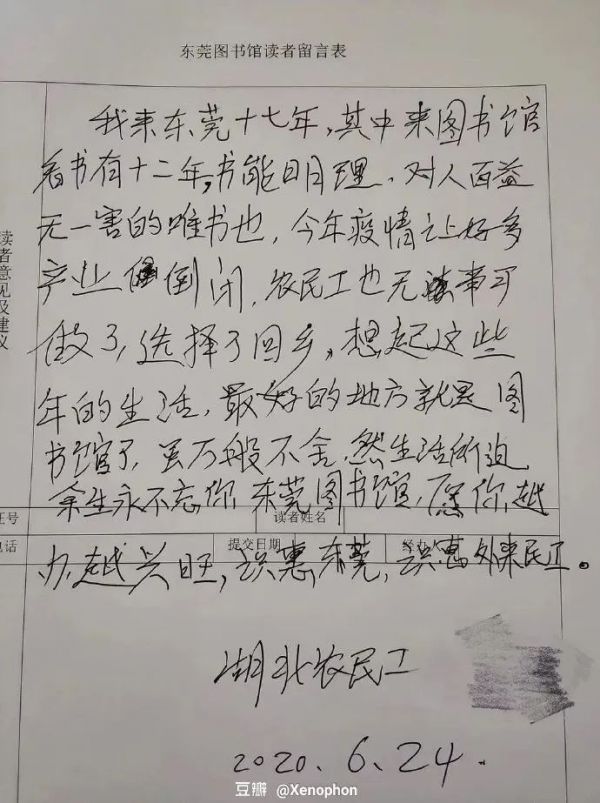 东莞图书馆读者留言表
我来东莞十七年,其中来图书馆
看书有十二年,书能明理、对人百益
无一害的唯书也,今年疫情让好多
产业倒闭,农民工也无事可
做了,选择了回乡,想起这些
年的生活,最好的地方就是图
书馆了,虽万般不舍,然生活所迫
余生永不忘你,东莞图书馆,愿你越
办越兴旺,识惠东莞,识惠外来民工。
读者意见及建议
证号
读者姓名
电话
提交日期
经办人
湖北农民工
2020、6、24.
豆瓣 @Xenophon